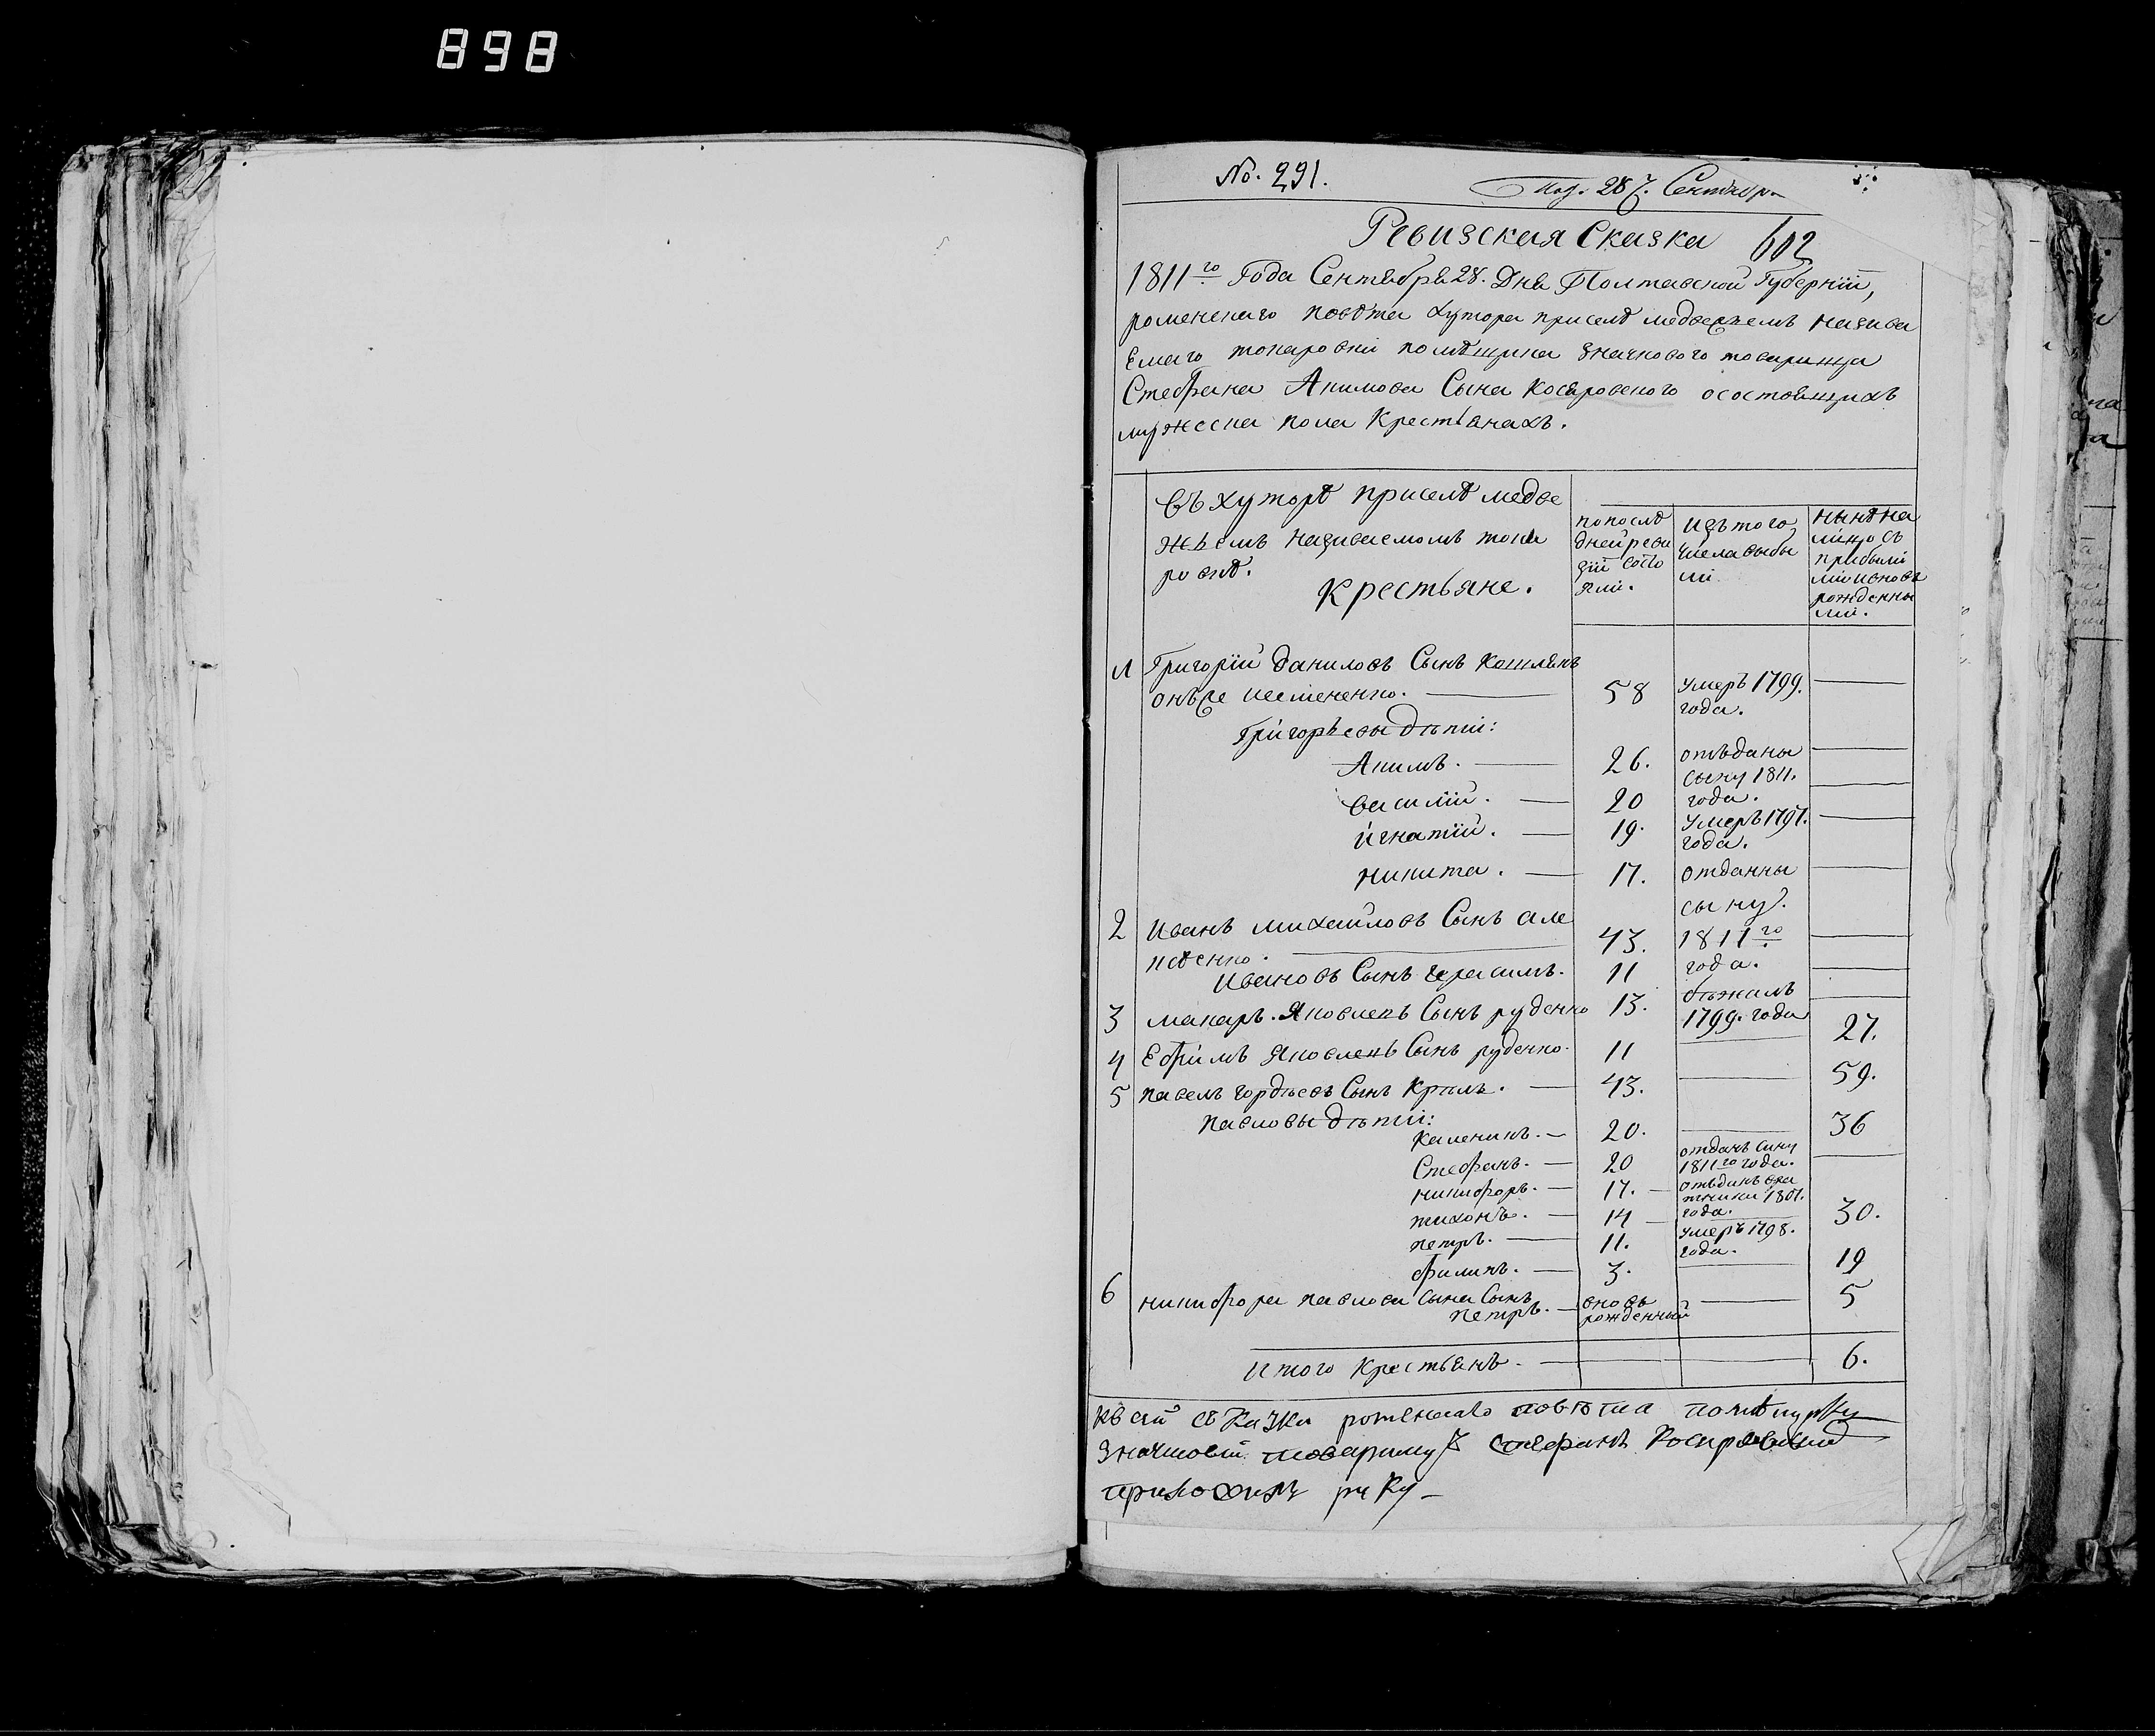 898
No. 291.
Под. 28 7. Сентябр.
Ревизская Сказка 602
1811го Года Сентебря 28. Дня Полтавской Губернїи,
роменского повѣта хутора приселѣ медвежемъ назива
Емаго токаровки помѣщика значкового товарища
Стефана Акимова Сына Косяровского осостоящихъ
мужеска пола Крестьянахъ.
Въ хуторѣ приселѣ медве
жьемъ називаемомъ тока
ровкѣ.
Крестьяне.
попослѣ
дней реви
зїи состо
яли.
изътого
числа выбы
ли
нынѣ на
лицо съ
прибыли
ми и вновь
рожденны
ми.
1 Григорїй даниловъ Сынъ
онъже 58 умеръ 1799.
года.
Григорьевы дѣти:
Акимъ. 26. отъданы
сыну 1811.
Василїй. 20 года.
Игнатїй. 19. Умеръ 1797.
года.
никита. 17. отданны
сыну.
2 Иванъ михайловъ Сынъ але
ксѣенко. 43. 1811го
Ивановъ Сынъ герасимъ. 11 года.
3 макаръ. Яковлевъ Сынъ руденко 13. бѣжалъ
1799. года
4 Ефимъ Яковлевъ Сынъ руденко. 11 27.
5 павелъ гордѣевъ Сынъ Криль. 43. 59.
павловы дѣти:
Каленикъ. 20. 36
Стефанъ. 20 отданъ сину
1811го года.
никифоръ. 17. отъданъ
1807.
года.
тихонъ. 14 30.
петръ. 11. умеръ 1798.
года.
филипъ. 3. 19
6 никифора павлова сына Сынъ
петръ. вновь
рожденный 5
Итого Крестьянъ. 6.
Къ сей съКазКи роменскаго повѣта
значковий товарищъ стефанъ Косяровский
приложилъ руКу